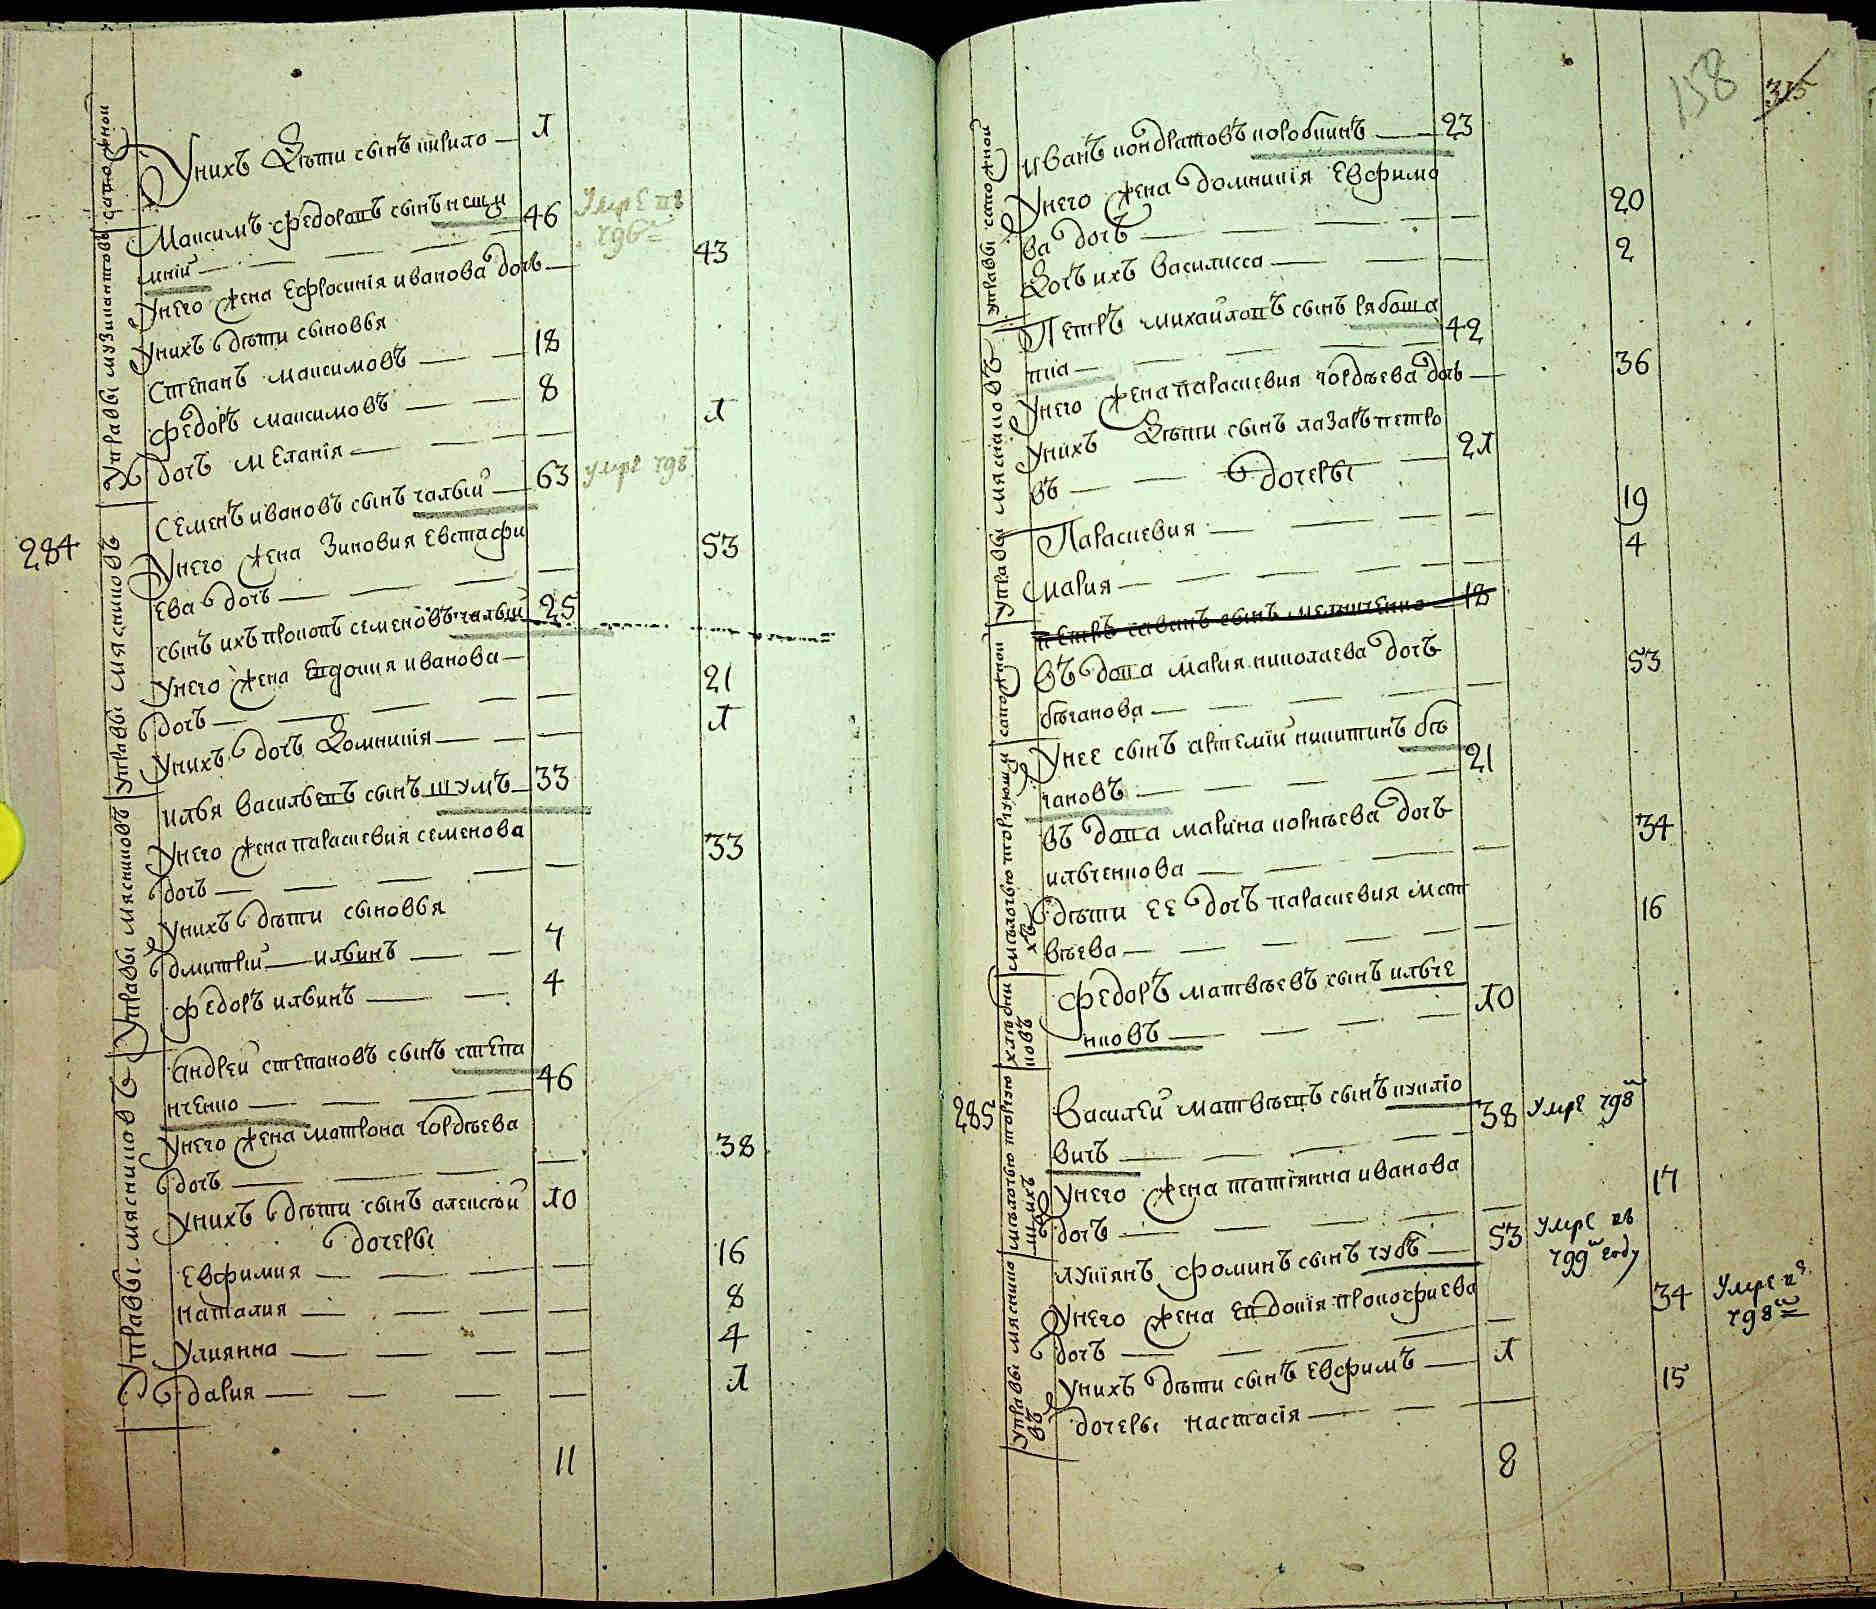 Унихъ Дѣти сынъ кирило — 1
Максимъ федоровъ сынъ нещи
мній — 46 Умре въ
796м
Унего жена Ефросинія иванова дочь — 43
Унихъ дѣти сыновья
Степанъ максимовъ — 18
Федоръ максимовъ — 8
дочь меланія — 1
Семенъ ивановъ сынъ чалый — 63 умре 798
284
Унего жена Зиновия Евстафи
ева дочь — 53
сынъ ихъ прокопъ семеновъ чалый 25
Унего жена Евдокия иванова —
дочь — 21
Унихъ дочь Домникія — 1
илья васильевъ сынъ шумъ — 33
Унего жена параскевия семенова
дочь — 33
Унихъ дѣти сыновья
дмитрій — ильинъ — 7
федоръ ильинъ — 4
Андрей степановъ сынъ степа
нченко — 46
Унего жена матрона гордѣева
дочь — 38
Унихъ дѣти сынъ алексѣй 10
дочеры
Евфимия — 16
наталия — 8
Улиянна — 4
дария — 1
11
Управы музикантовъ сапожной
Управы мясниковъ
Управы мясниковъ
Управы мясниковъ
158 315
иванъ кондратовъ коробкинъ — 23
Унего жена домникія Евфимо
ва дочь — 20
Дочь ихъ василисса — 2
Петръ михайловъ сынъ рябоша
пка — 42
Унего жена параскевия гордѣева дочь — 36
Унихъ Дѣти сынъ лазаръ петро
въ — 21
дочеры
Параскевия — 19
мария — 4
петръ савинъ сынъ мельниченко — 18
въдова мария николаева дочь
бѣганова — 53
Унее сынъ артемій никитинъ бѣ
гановъ — 21
въдова марина корнѣева дочь
ильченкова — 34
дѣти ее дочь параскевия мат
вѣева — 16
федоръ матвѣевъ сынъ ильче
нковъ — 10
285
Василей матвѣевъ сынъ куклѣо
вичъ — 38 Умре 798м
Унего жена татіянна иванова
дочь — 17
лукіянъ фоминъ сынъ губъ — 53 Умре въ
799м году
Унего жена Евдокія прокофиева
дочь — 34 Умре въ
798м
Унихъ дѣти сынъ Евфимъ — 1
дочеры настасія — 15
8
управы сапожной
управы мясниковъ
сапожной
мѣлочью торгующи
хъ
хлѣбни
ковъ
мѣлочью торгую
щихъ
управы мяснико
въ